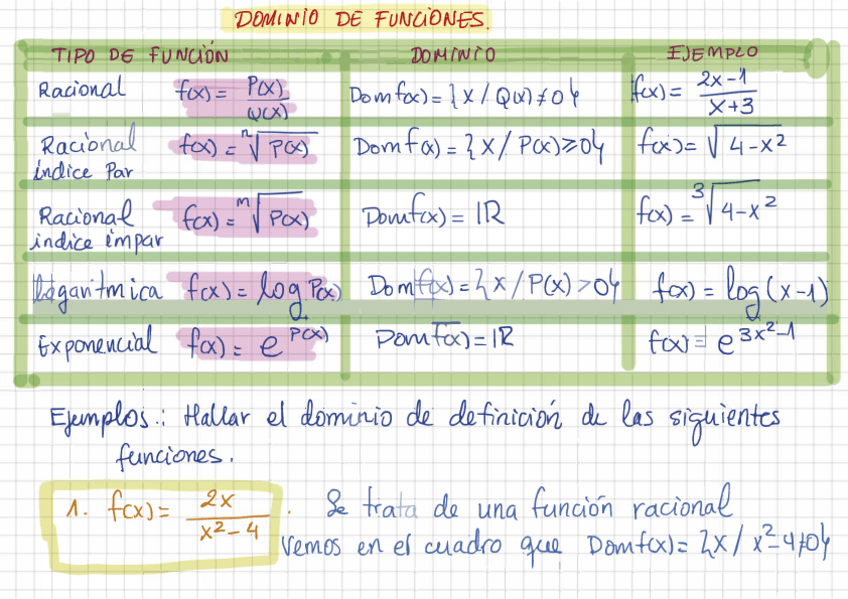 DOMINIO DE FUNCIONES.
TIPO DE FUNCIÓN DOMINIO EJEMPLO
Racional f(x) = P(x)/Q(x) Dom f(x) = {x / Q(x) ≠ 0} f(x) = 2x-1/x+3
Racional índice Par f(x) = ⁿ√P(x) Dom f(x) = {x / P(x) ≥ 0} f(x) = √4-x²
Racional índice impar f(x) = ᵐ√P(x) Dom f(x) = ℝ f(x) = ³√4-x²
Logarítmica f(x) = log P(x) Dom f(x) = {x / P(x) > 0} f(x) = log (x-1)
Exponencial f(x) = e^P(x) Dom f(x) = ℝ f(x) = e^3x²-1
Ejemplos.: Hallar el dominio de definición de las siguientes
funciones.
1. f(x) = 2x/x²-4 . Se trata de una función racional
Vemos en el cuadro que Dom f(x) = {x / x²-4 ≠ 0}